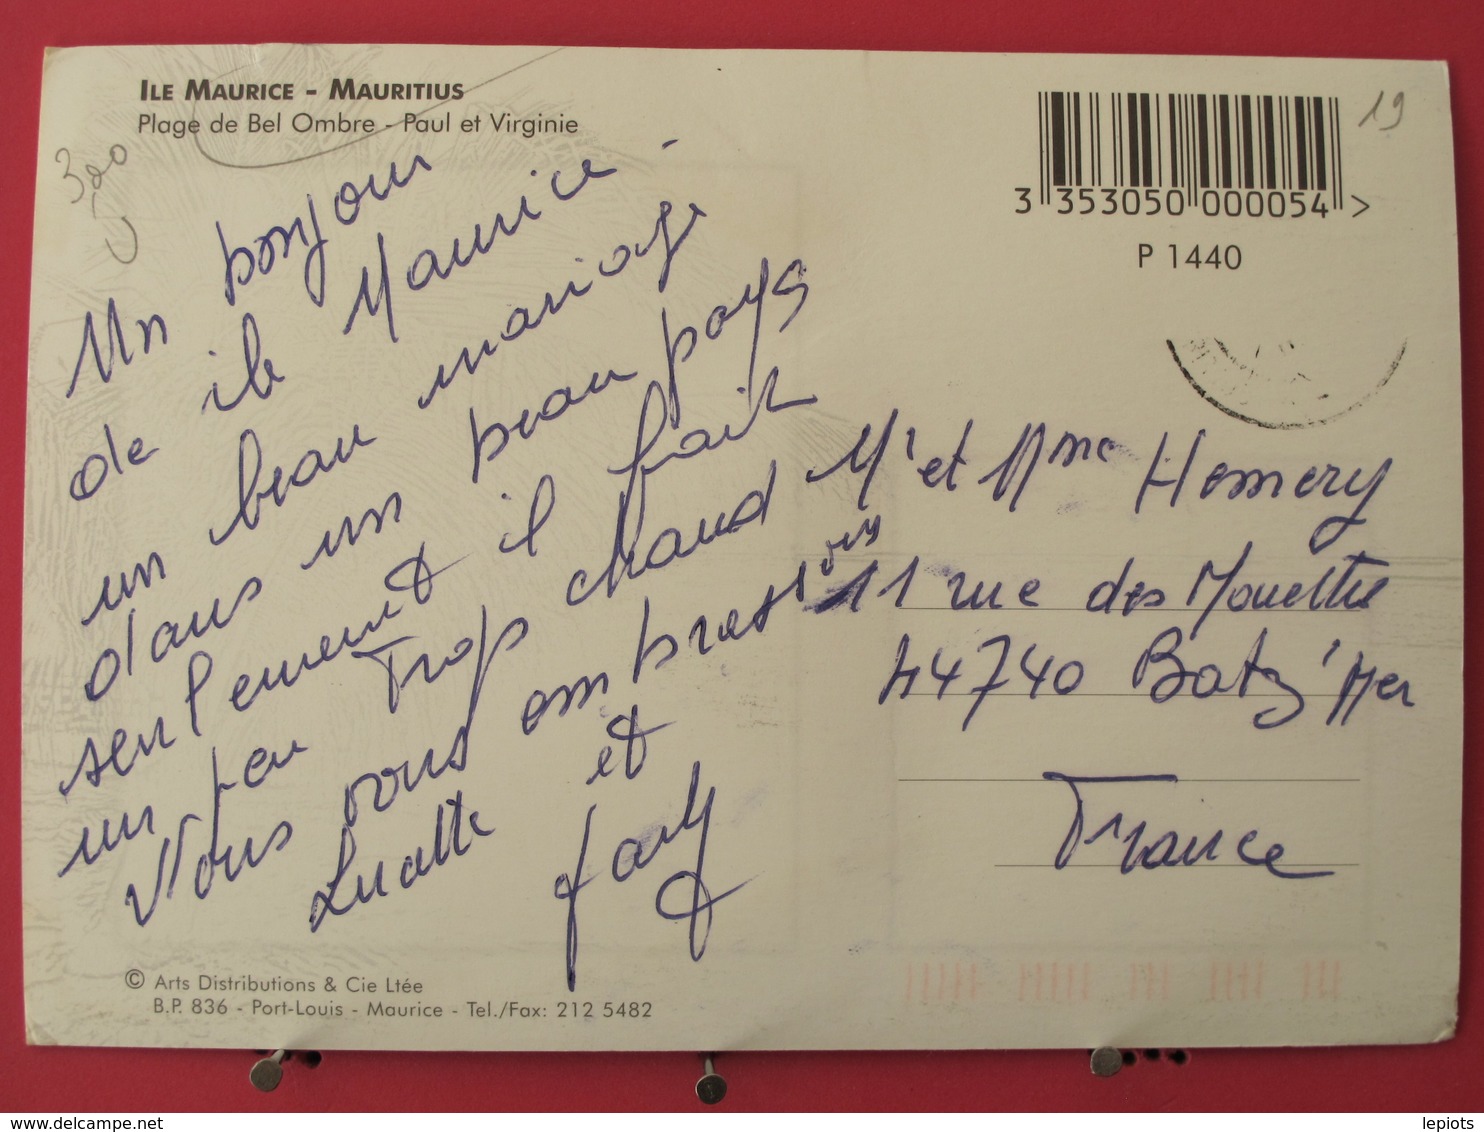 ILE MAURICE - MAURITIUS
Plage de Bel Ombre - Paul et Virginie
300
Un bonjour
de ile Maurice -
un beau mariage
dans un beau pays
seulement il fait
un peu Trop chaud
Nous vous embrassons
et
© Arts Distributions & Cie Ltée
B.P. 836 - Port-Louis - Maurice - Tel./Fax: 212 5482
19
3 353050 000054 >
P 1440
Mr et Mme Hemery
11 rue des Mouette
44740 Batz / Mer
France
delcampe.net
lepiots